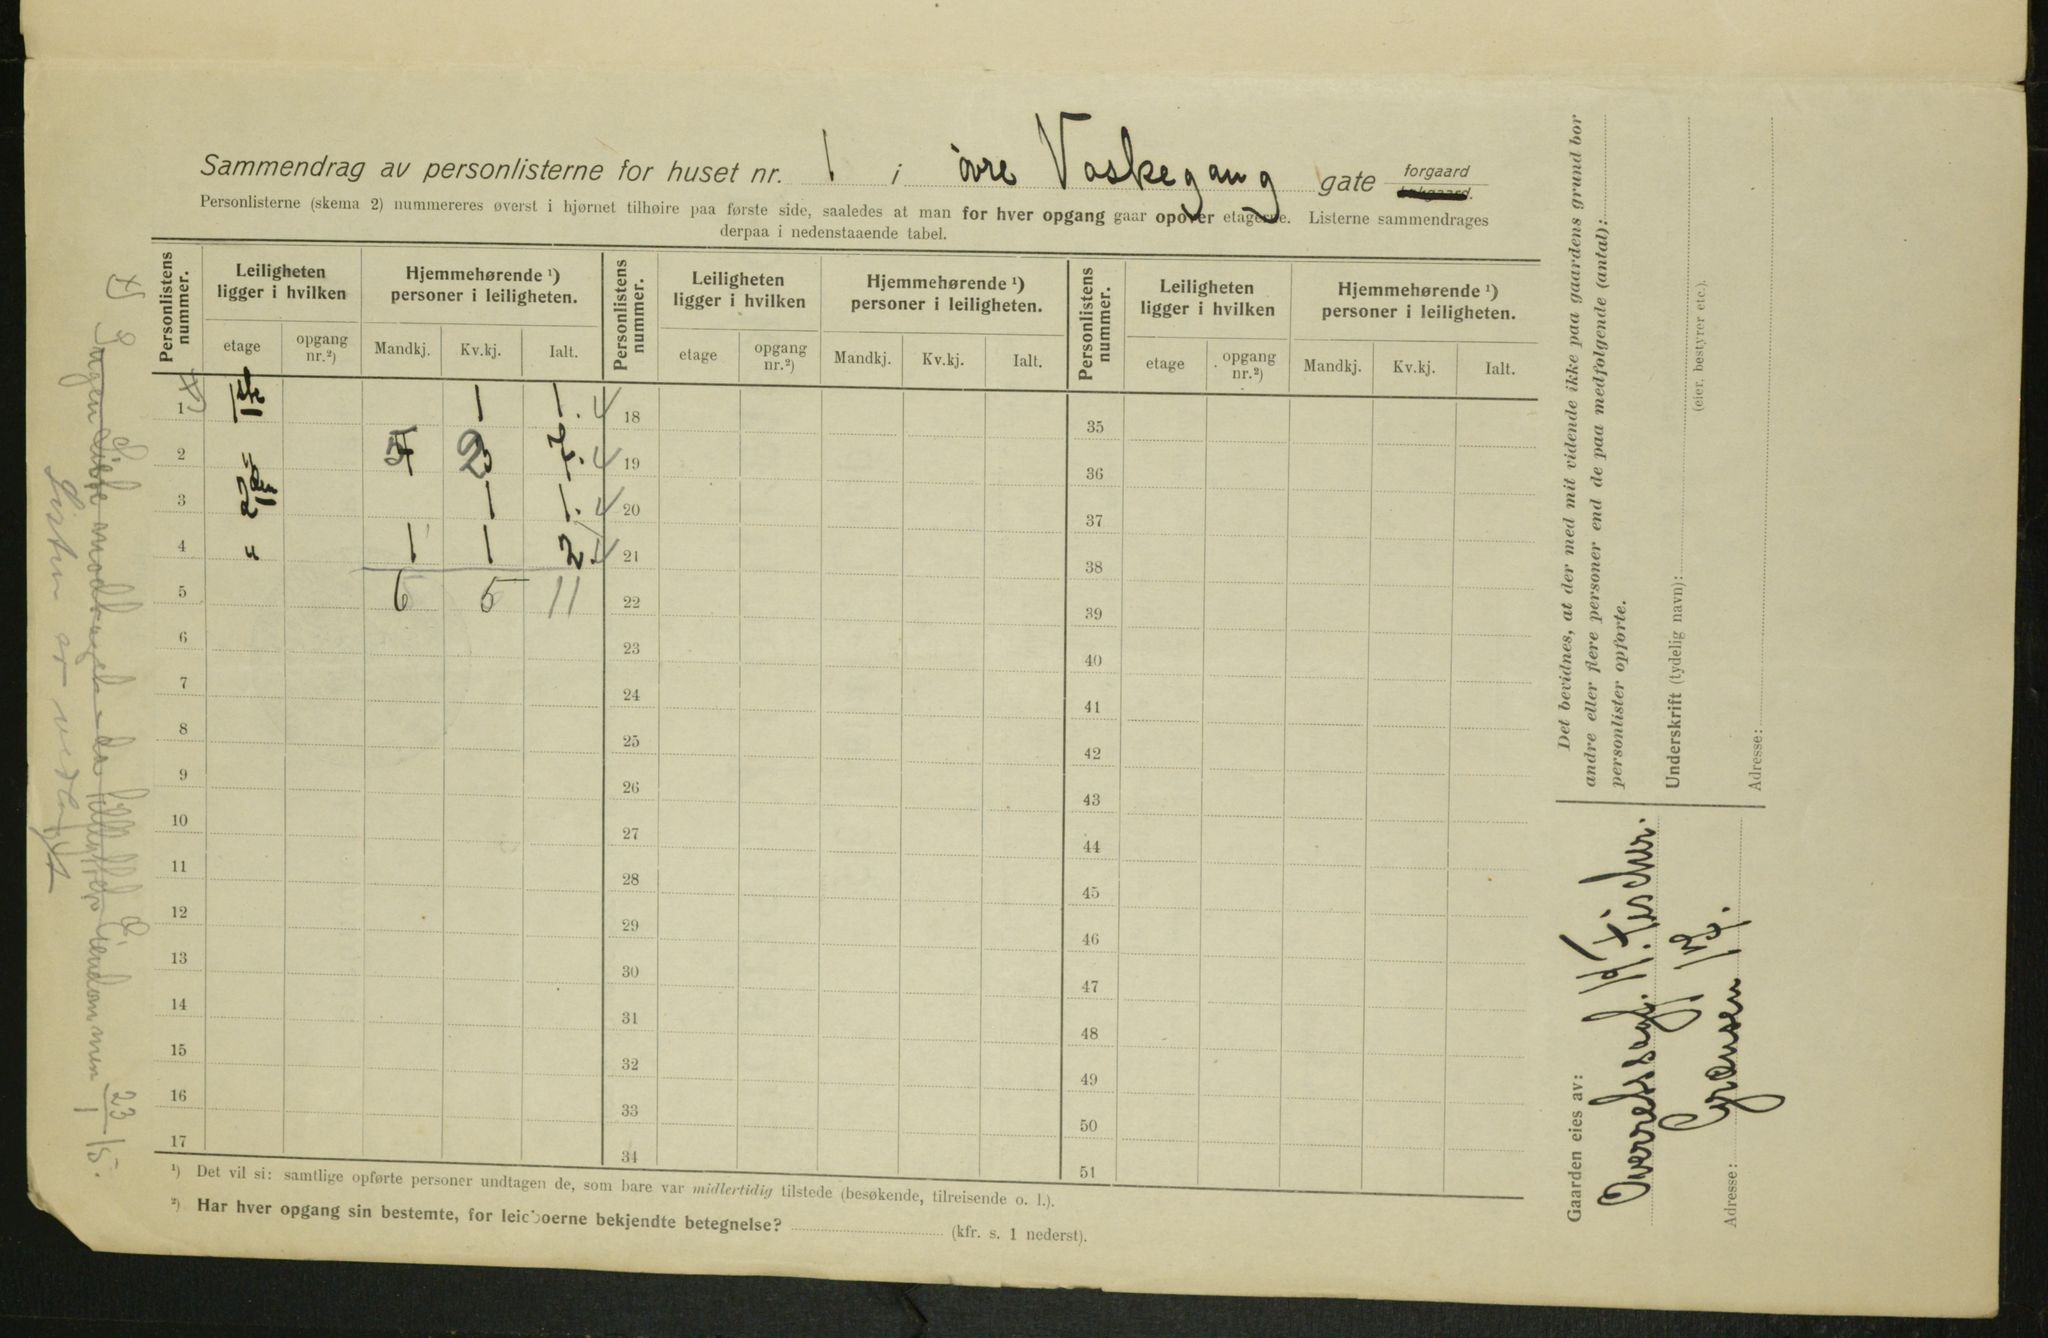 Sammendrag av personlisterne for huset nr. 1 i øvre Vaskegang gate forgaard
Personlisterne (skema 2) nummereres øverst i hjørnet tilhøire paa første side, saaledes at man for hver opgang gaar opover etagerne. Listerne sammendrages
derpaa i nedenstaaende tabel.
Personlistens nummer. Leiligheten ligger i hvilken Hjemmehørende ¹) personer i leiligheten. Personlistens nummer. Leiligheten ligger i hvilken Hjemmehørende ¹) personer i leiligheten. Personlistens nummer. Leiligheten ligger i hvilken Hjemmehørende ¹) personer i leiligheten.
etage opgang nr.²) Mandkj. Kv.kj. Ialt. etage opgang nr.²) Mandkj. Kv.kj. Ialt. etage opgang nr.²) Mandkj. Kv.kj. Ialt.
1 1 1. 18 35
2 5 2 7. 19 36
3 1 1. 20 37
4 " 1 1 2. 21 38
5 6 5 11 22 39
6 23 40
7 24 41
8 25 42
9 26 43
10 27 44
11 28 45
12 29 46
13 30 47
14 31 48
15 32 49
16 33 50
17 34 51
¹) Det vil si: samtlige opførte personer undtagen de, som bare var midlertidig tilstede (besøkende, tilreisende o. l.).
²) Har hver opgang sin bestemte, for leieboerne bekjendte betegnelse? (kfr. s. 1 nederst).
Det bevidnes, at der med mit vidende ikke paa gaardens grund bor
andre eller flere personer end de paa medfølgende (antal):
personlister opførte.
Underskrift (tydelig navn):
(eier, bestyrer etc.).
Adresse:
Gaarden eies av:
Overretssagf. Fischer.
Adresse: Grænsen
Listen er vedlagt
Ingen Liste modtaget da Eiendommen 23/1 15.